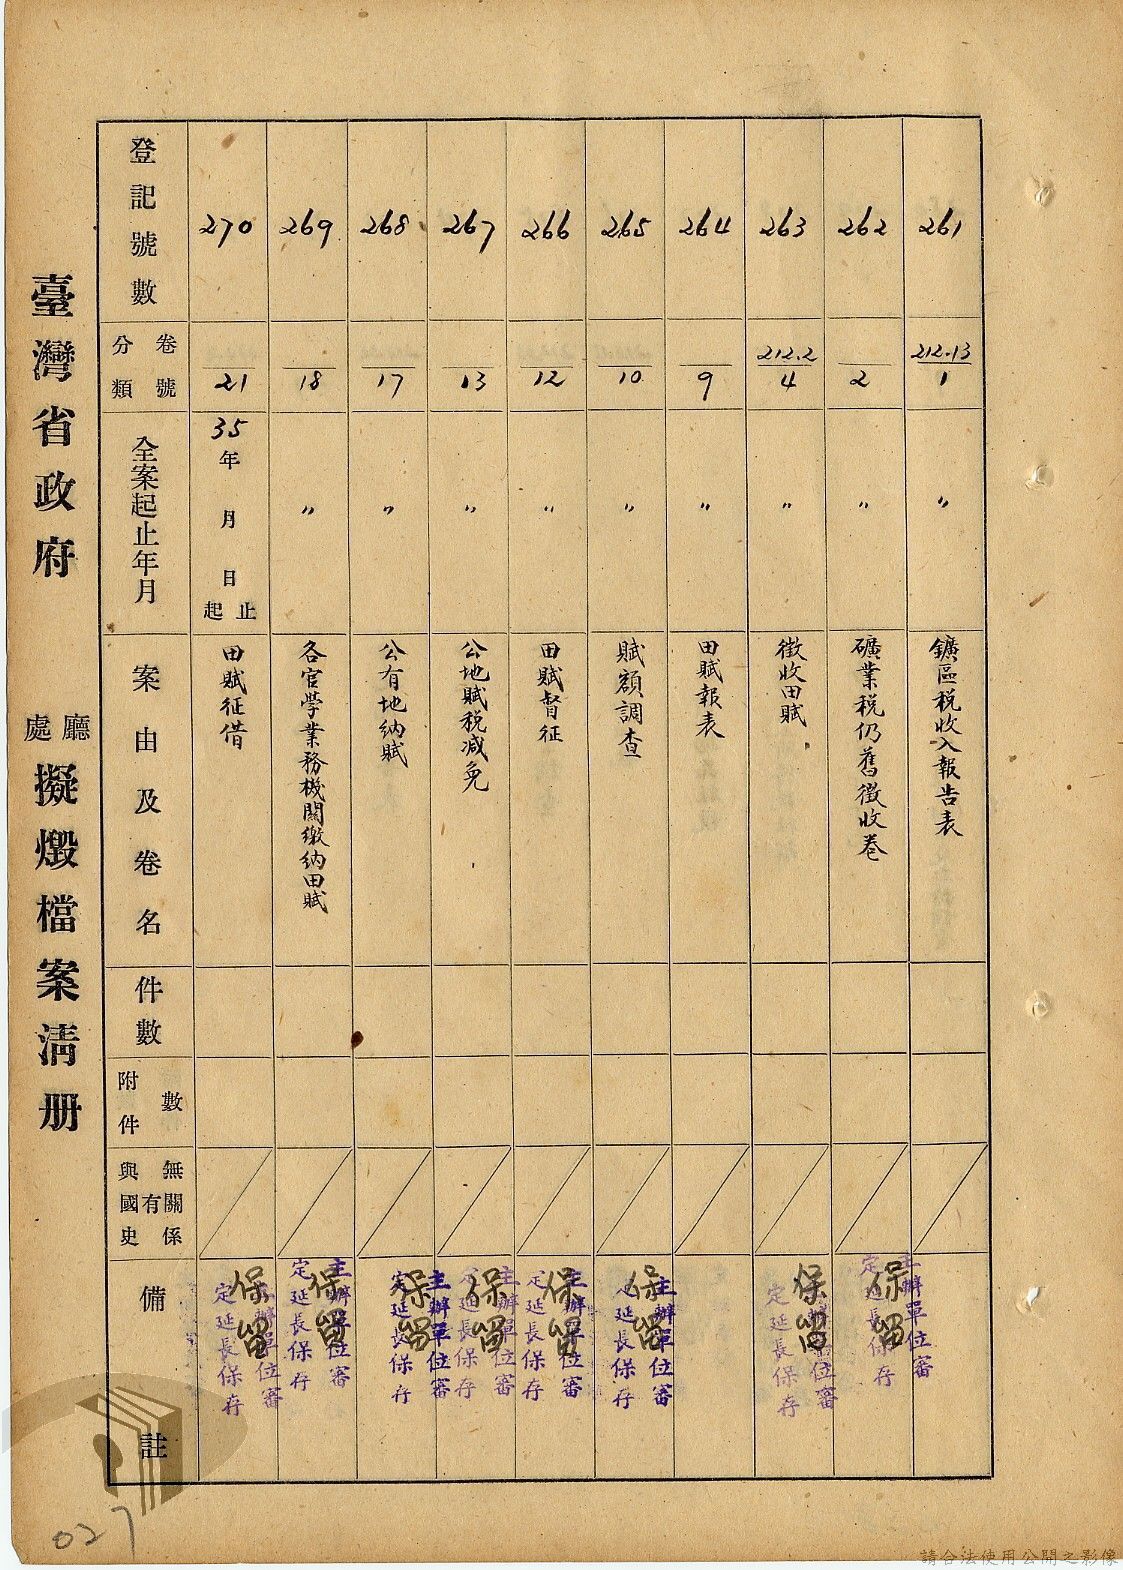 臺灣省政府
廳
處
擬燬檔案淸册
登記號數
卷號
分類
全案起止年月
案由及卷名
件數
附件
數
與國史
有
無
關係
備註
261
212.13
1
〃
鑛區税收入報告表
主辦單位審
定延長保存
保留
262
2
〃
礦業税仍舊徵收卷
主辦單位審
定延長保存
保留
263
212.2
4
〃
徵收田賦
主辦單位審
定延長保存
保留
264
9
〃
田賦報表
265
10
〃
賦額調查
主辦單位審
定延長保存
保留
266
12
〃
田賦督征
主辦單位審
定延長保存
保留
267
13
〃
公地賦税减免
主辦單位審
定延長保存
保留
268
17
〃
公有地納賦
主辦單位審
定延長保存
保留
269
18
〃
各官學業務機關繳納田賦
主辦單位審
定延長保存
保留
270
21
35年 月 日
止
起
田賦征借
主辦單位審
定延長保存
保留
027
請合法使用公開之影像